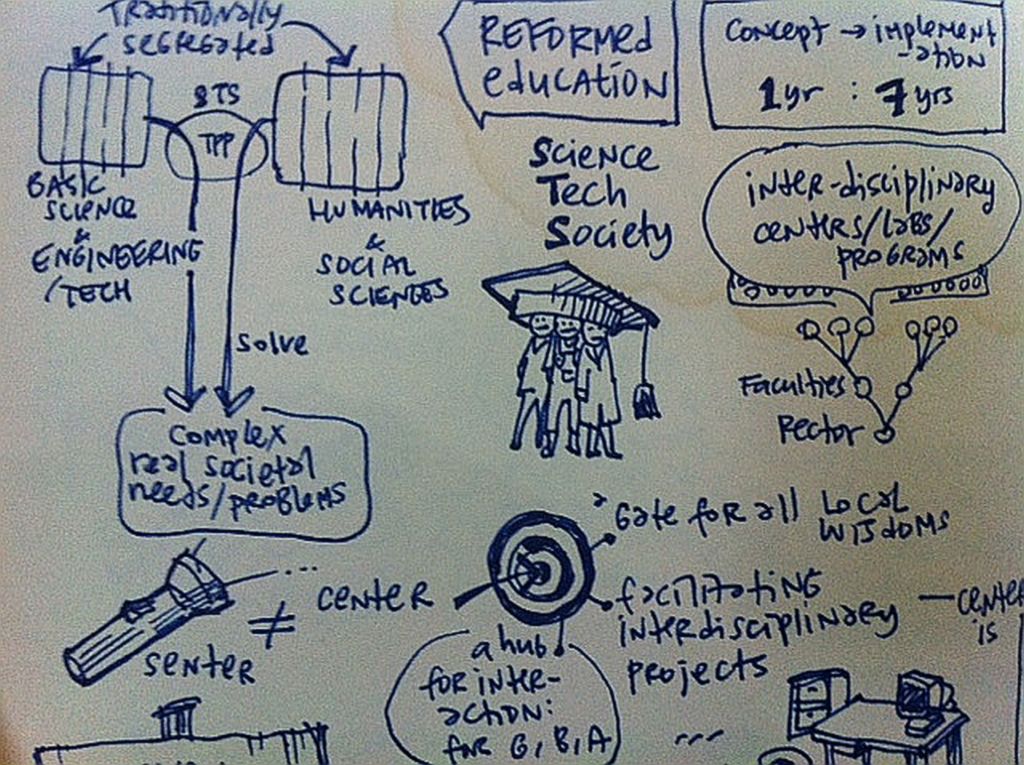 TRADITIONALLY
SEGREGATED
STS
TPP
BASIC
SCIENCE
&
ENGINEERING
/TECH
HUMANITIES
&
SOCIAL
SCIENCES
solve
COMPLEX
real societal
needs/problems
REFORMED
education
CONCEPT → implement
-ation
1yr : 7yrs
Science
Tech
Society
inter-disciplinary
centers/labs/
programs
Faculties
Rector
senter
≠
center
...
a hub
for inter-
action:
for G, B, A
Gate for all Local
Wisdoms
facilitating
interdisciplinary
projects
...
center
is